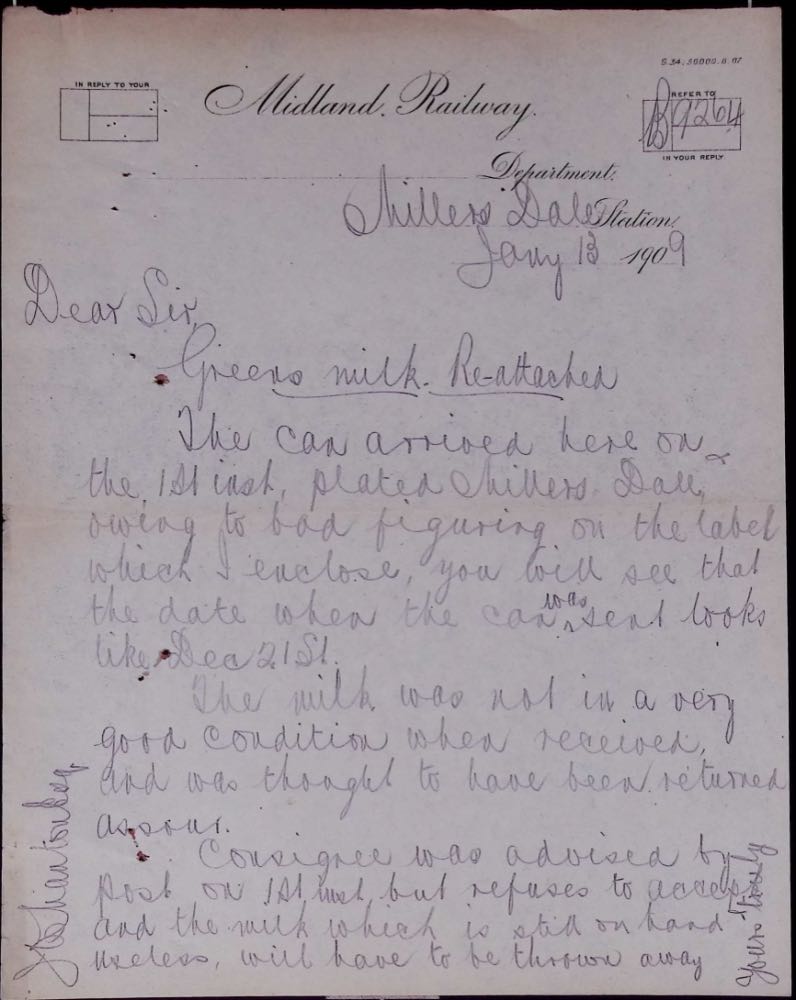 S.34,50000.8.07
IN REPLY TO YOUR
Midland. Railway.
REFER TO
B 9264
IN YOUR REPLY
Department.
Millers Dale Station.
Jany 13 1909
Dear Sir,
Greens milk. Re-attached
The can arrived here on
the 1st inst, plated Millers Dale,
owing to bad figuring on the label
which I enclose, you will see that
the date when the can was sent looks
like Dec 21st.
The milk was not in a very
good condition when received,
and was thought to have been returned
as sour.
Consignee was advised by
post on 1st inst, but refuses to accept
and the milk which is still on hand
useless, will have to be thrown away
Yours truly
Esq.